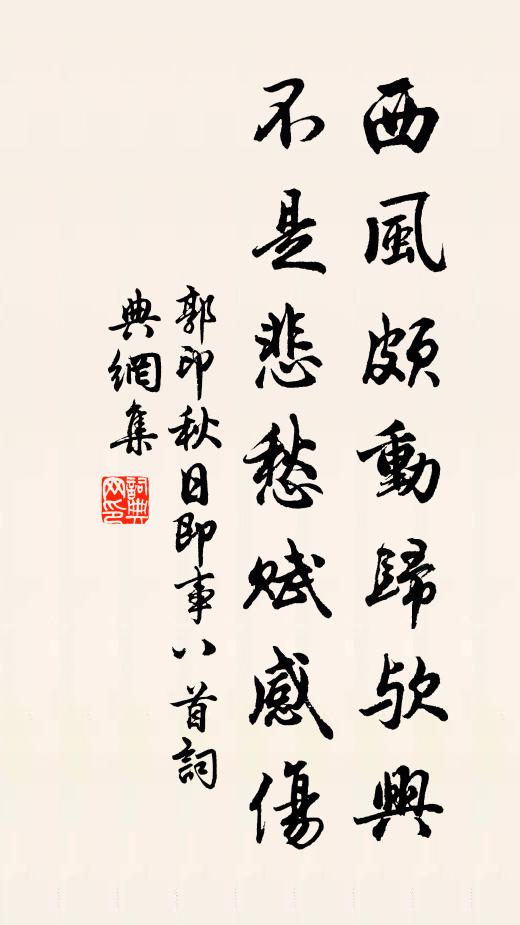 西風頗動歸歟興
不是悲愁賦感傷
郭印秋日即事八首詞
典網集
詞典網印